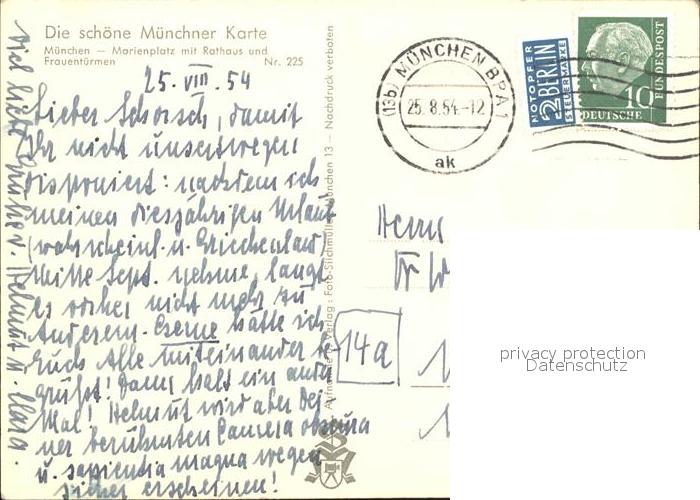 Die schöne Münchner Karte
München — Marienplatz mit Rathaus und
Frauentürmen Nr. 225
25. VIII. 54
Lieber Schorsch, damit
Ihr nicht unsertwegen
disponiert: nachdem ich
meinen diesjährigen Urlaub
(wahrscheinl. n. Griechenland)
Mitte Sept. nehme, langt
es vorher nicht mehr zu
Anderem. Gerne hätte ich
Euch Alle miteinander be-
grüßt! Dann halt ein ander
Mal! Helmut wird aber Dei-
ner berühmten Camera obscura
u. sapientia magna wegen
sicher erscheinen!
Viel liebe Grüße. Helmut u.
Aufnahme u. Verlag: Foto-Silchmüller, München 13 — Nachdruck verboten
(13b) MÜNCHEN BPA 1
25. 8. 54.-12
ak
NOTOPFER
2 BERLIN
STEUERMARKE
10
DEUTSCHE
BUNDESPOST
Herrn
Dr
14a
privacy protection
Datenschutz